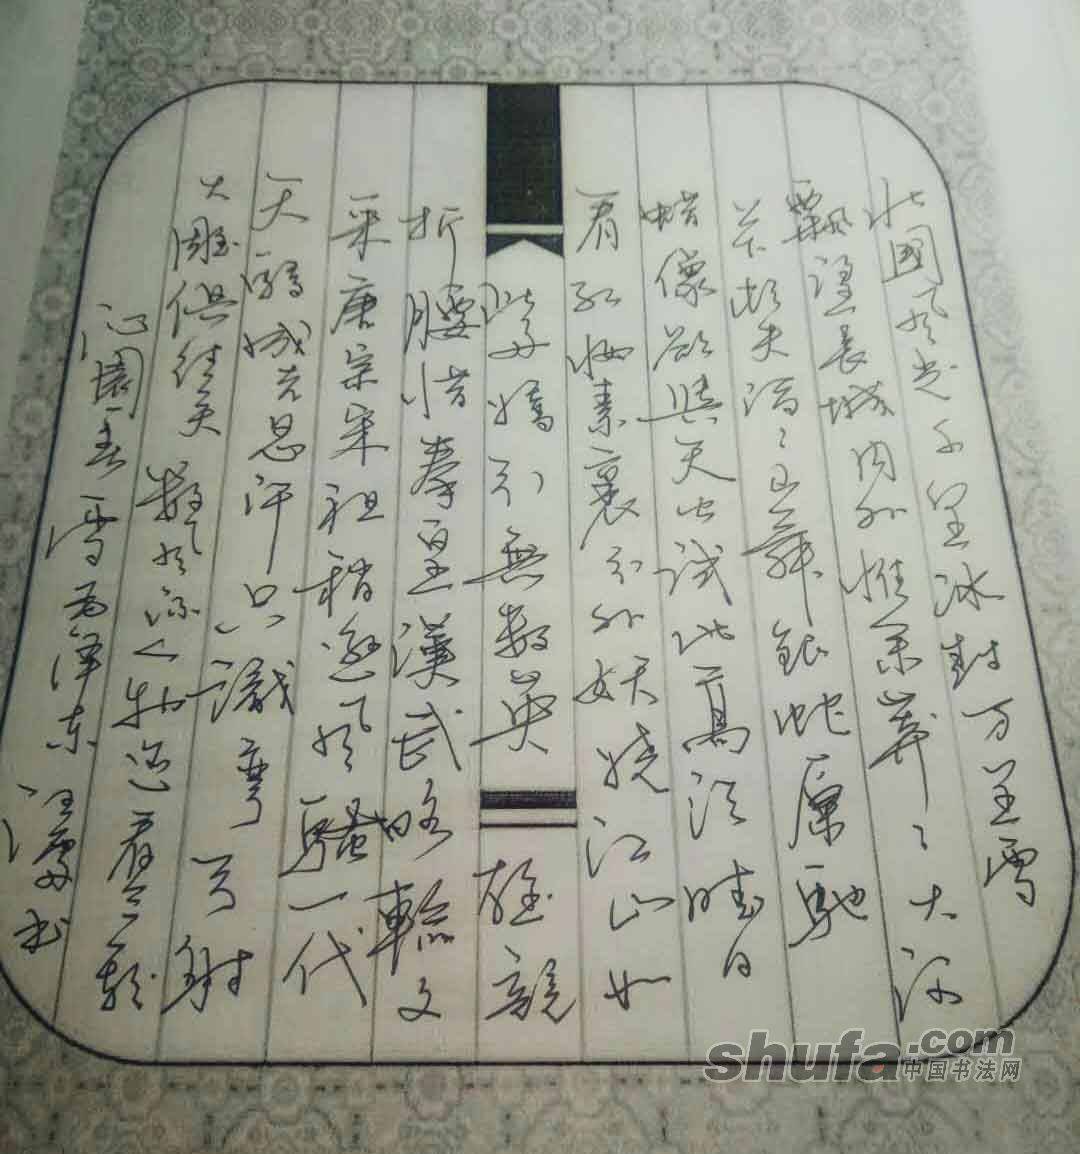 北國风光千里冰封万里雪
飄望長城内外惟余莽〻大河
上下顿失滔〻山舞銀蛇原馳
蜡像欲與天公試比高须晴日
看红妆素裹分外妖娆江山如
此多嬌引無数英雄競
折腰惜秦皇漢武略輸文
采唐宗宋祖稍遜风騷一代
天驕成吉思汗只識彎弓射
大雕俱往矣数风流人物还看今朝
沁園春雪毛泽东
书
shufa.com
中国书法网